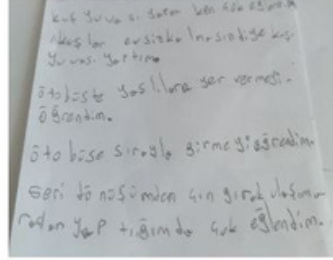 kuş yuva sı yapar ken çok eğlendim
kuşlar evsizka lmasındiye kuş
yuvası yaptım
otobüste yaşlılara yer vermeyi
öğrendim.
oto büse sırayla girmeyi öğrendim.
Geri dö nüşümden çın gırak
yap tığımda çok eğlendim.